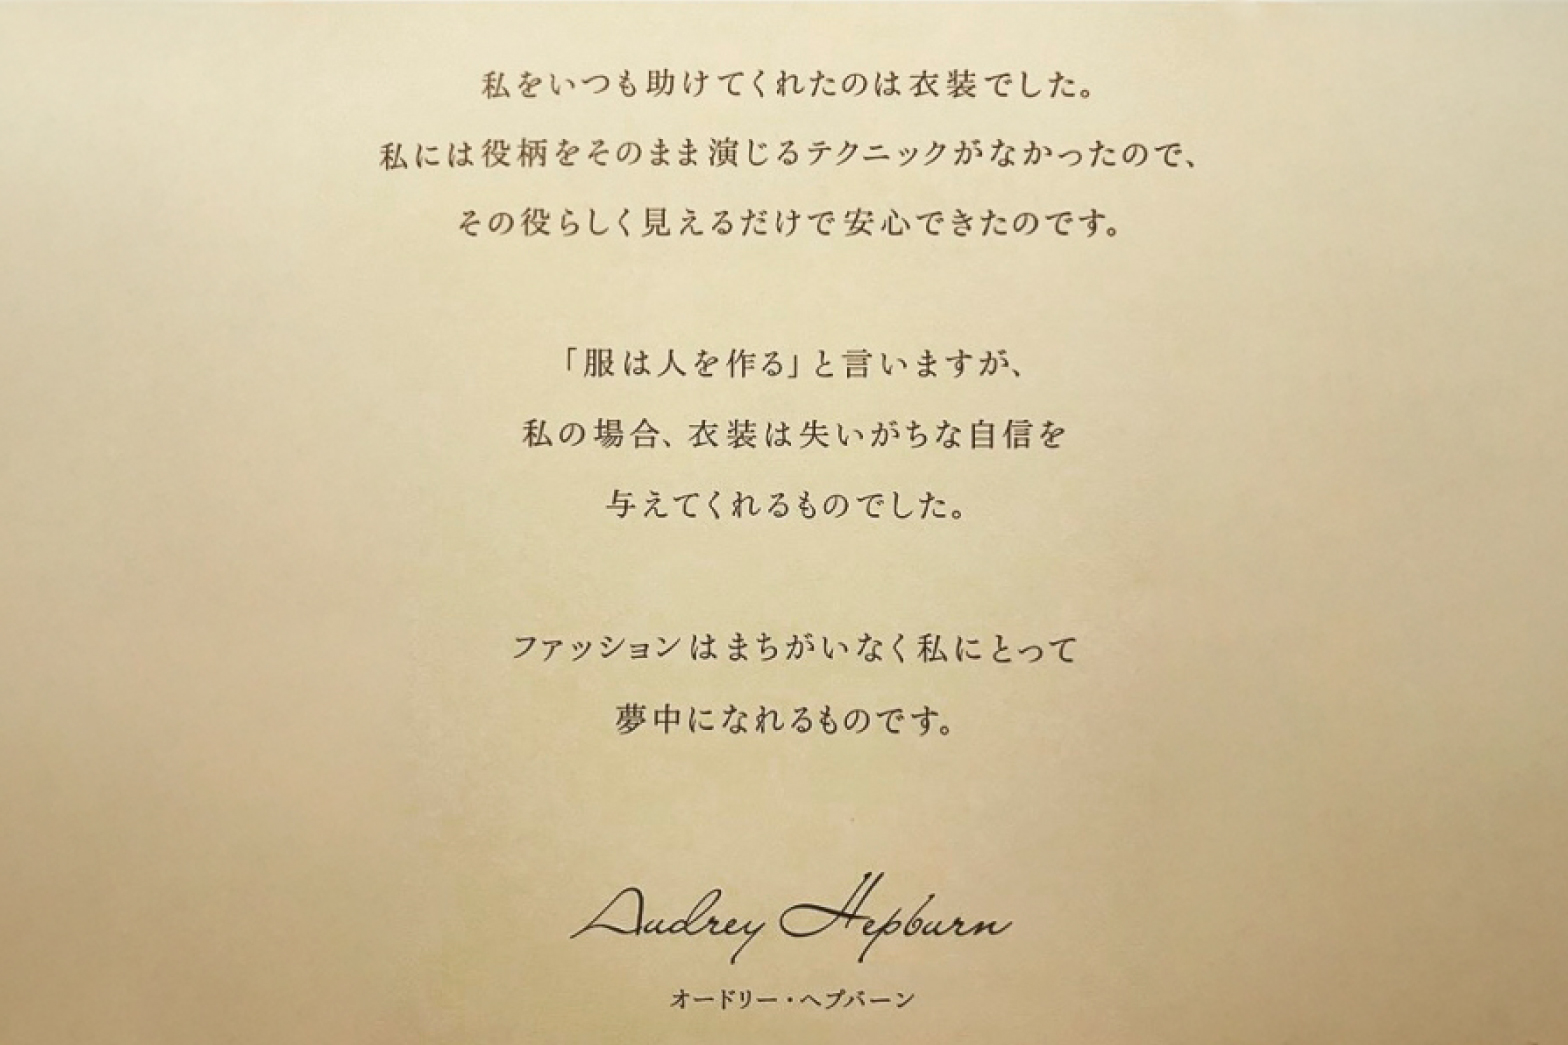 私をいつも助けてくれたのは衣装でした。
私には役柄をそのまま演じるテクニックがなかったので、
その役らしく見えるだけで安心できたのです。
「服は人を作る」と言いますが、
私の場合、衣装は失いがちな自信を
与えてくれるものでした。
ファッションはまちがいなく私にとって
夢中になれるものです。
Audrey Hepburn
オードリー・ヘプバーン